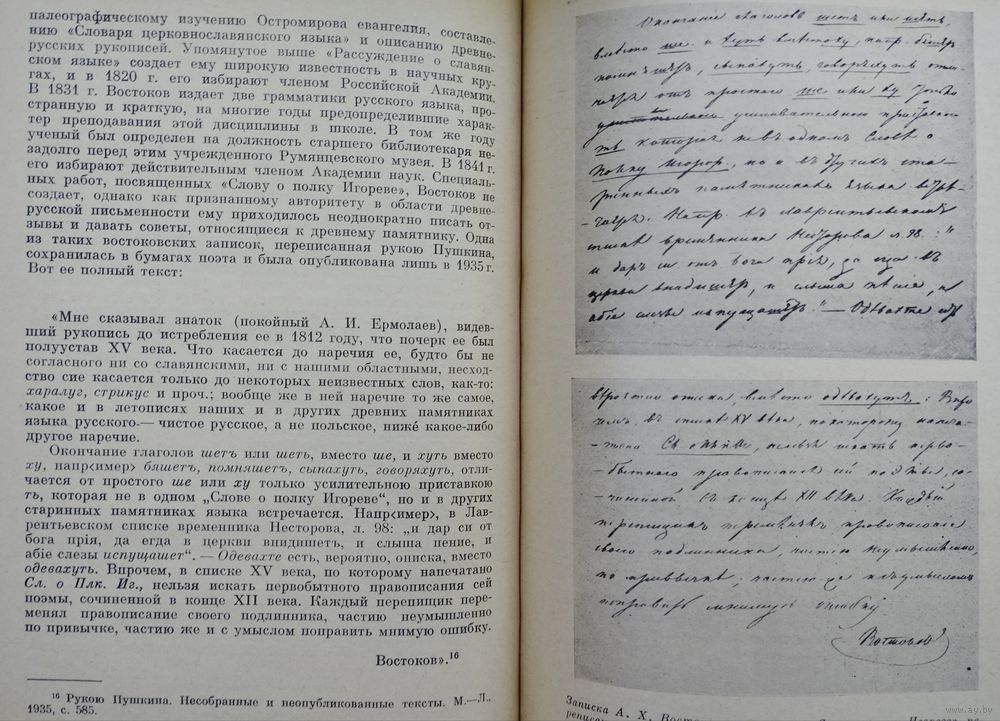 палеографическому изучению Остромирова евангелия, составле-
нию «Словаря церковнославянского языка» и описанию древне-
русских рукописей. Упомянутое выше «Рассуждение о славян-
ском языке» создает ему широкую известность в научных кру-
гах, и в 1820 г. его избирают членом Российской Академии.
В 1831 г. Востоков издает две грамматики русского языка, про-
странную и краткую, на многие годы предопределившие харак-
тер преподавания этой дисциплины в школе. В том же году
ученый был определен на должность старшего библиотекаря не-
задолго перед этим учрежденного Румянцевского музея. В 1841 г.
его избирают действительным членом Академии наук. Специаль-
ных работ, посвященных «Слову о полку Игореве», Востоков не
создает, однако как признанному авторитету в области древне-
русской письменности ему приходилось неоднократно писать от-
зывы и давать советы, относящиеся к древнему памятнику. Одна
из таких востоковских записок, переписанная рукою Пушкина,
сохранилась в бумагах поэта и была опубликована лишь в 1935 г.
Вот ее полный текст:
«Мне сказывал знаток (покойный А. И. Ермолаев), видев-
ший рукопись до истребления ее в 1812 году, что почерк ее был
полуустав XV века. Что касается до наречия ее, будто бы не
согласного ни со славянскими, ни с нашими областными, несход-
ство сие касается только до некоторых неизвестных слов, как-то:
харалуг, стрикус и проч.; вообще же в ней наречие то же самое,
какое и в летописях наших и в других древних памятниках
языка русского — чистое русское, а не польское, ниже́ какое-либо
другое наречие.
Окончание глаголов шетъ или шеть, вместо ше, и хуть вместо
ху, напр<имер> бяшетъ, помняшетъ, сыпахуть, говоряхуть, отли-
чается от простого ше или ху только усилительною приставкою
ть, которая не в одном „Слове о полку Игореве“, но и в других
старинных памятниках языка встречается. Напр<имер>, в Лав-
рентьевском списке временника Несторова, л. 98: „и дар си от
бога прія, да егда в церкви внидишетъ, и слыша пение, и
абіе слезы испущашет“. — Одевахте есть, вероятно, описка, вместо
одевахуть. Впрочем, в списке XV века, по которому напечатано
Сл. о Плк. Иг., нельзя искать первобытного правописания сей
поэмы, сочиненной в конце XII века. Каждый перепищик пере-
менял правописание своего подлинника, частию неумышленно
по привычке, частию же и с умыслом поправить мнимую ошибку.
Востоков».¹⁶
¹⁶ Рукою Пушкина. Несобранные и неопубликованные тексты. М.—Л.,
1935, с. 585.
Окончание глаголов шетъ или шеть,
вместо ше. и хуть вместо ху, напр.
сыпахуть, говоряхуть
отъ простого ше или ху
усилительною
ть которая не в одном Слове о
Полку Игорев, но и в других ста-
ринных памятниках языка встре-
Напр. въ Лаврентьевском
списке временника Несторова л. 98: "
и даръ си отъ бога прія, да егда въ
и слыша пѣніе, и
абіе слезы испущашетъ." — Одѣвахте есть
вероятно описка, вместо одѣвахуть. Впро-
чемъ, въ списке XV века, по которому напеча-
тано Сл. о Пл. Иг. нельзя искать перво-
бытного правописания сей поэмы, со-
чиненной въ конце XII века. Каждый
перепищикъ пременялъ правописание
своего подлинника, частию неумышленно,
по привычке, частию же съ умысломъ
поправить мнимую ошибку
Востоков
Записка А. Х. Вост